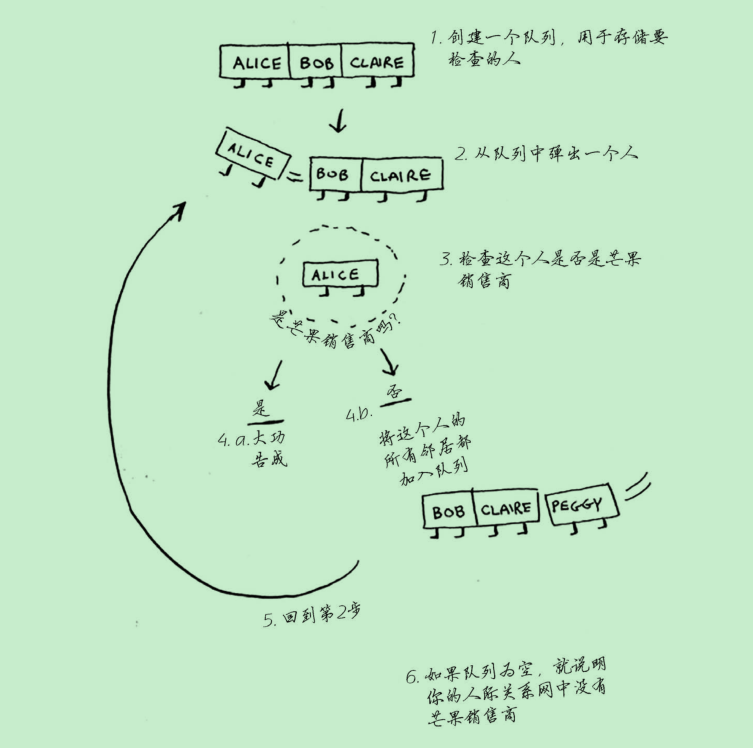 1. 创建一个队列，用于存储要
检查的人
ALICE BOB CLAIRE
2. 从队列中弹出一个人
ALICE BOB CLAIRE
3. 检查这个人是否是芒果
销售商
ALICE
是芒果销售商吗？
是
4.a. 大功
告成
否
4.b. 将这个人的
所有邻居都
加入队列
BOB CLAIRE PEGGY
5. 回到第2步
6. 如果队列为空，就说明
你的人际关系网中没有
芒果销售商